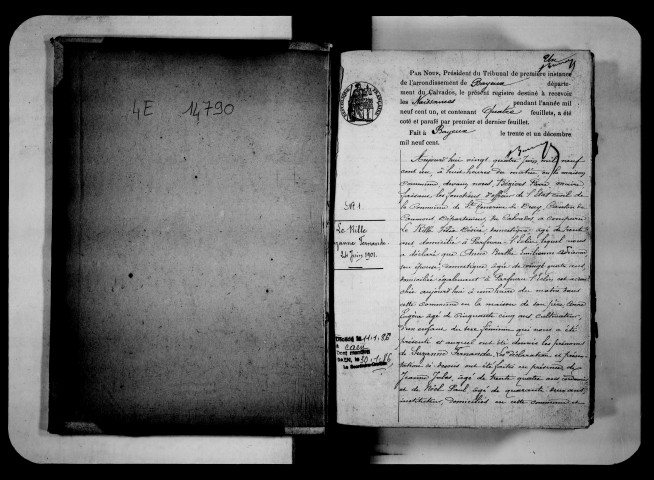 4E 14790
Par Nous, Président du Tribunal de première instance
de l'arrondissement de Bayeux départe-
ment du Calvados, le présent registre destiné à recevoir
les Naissances pendant l'année mil
neuf cent un, et contenant Quatre feuillets, a été
coté et parafé par premier et dernier feuillet.
Fait à Bayeux le trente et un décembre
mil neuf cent.
N° 1.
Le Rille
Suzanne Fernande
24 Juin 1901.
Décédé le 11.1.86
à Caen
CAEN, le 20.1.86
Aujourd'hui vingt quatre Juin mil neuf
cent un, à huit heures du matin en la maison
commune, devant nous, Pierre, maire
faisant les fonctions d'officier de l'état civil de
la Commune de St Honorine de Ducy, Canton de
Caumont Département du Calvados a comparu
Le Rille Désiré, domestique âgé de trente
ans domicilié à Parfouru l'Eclin lequel nous
a déclaré que Berthe
son épouse, domestique, âgée de vingt quatre ans
domiciliée également à Parfouru l'Eclin est accou-
chée aujourd'hui à une heure du matin dans
cette commune en la maison de son père,
Eugène âgé de cinquante cinq ans cultivateur,
d'un enfant du sexe féminin qui nous a été
présenté et auquel ont été donnés les prénoms
de Suzanne Fernande. Les déclaration et présen-
tation ci dessus ont été faites en présence de
Jeanne Jules, âgé de trente quatre ans
et de Noël Paul, âgé de quarante deux ans
instituteur, domiciliés en cette commune et